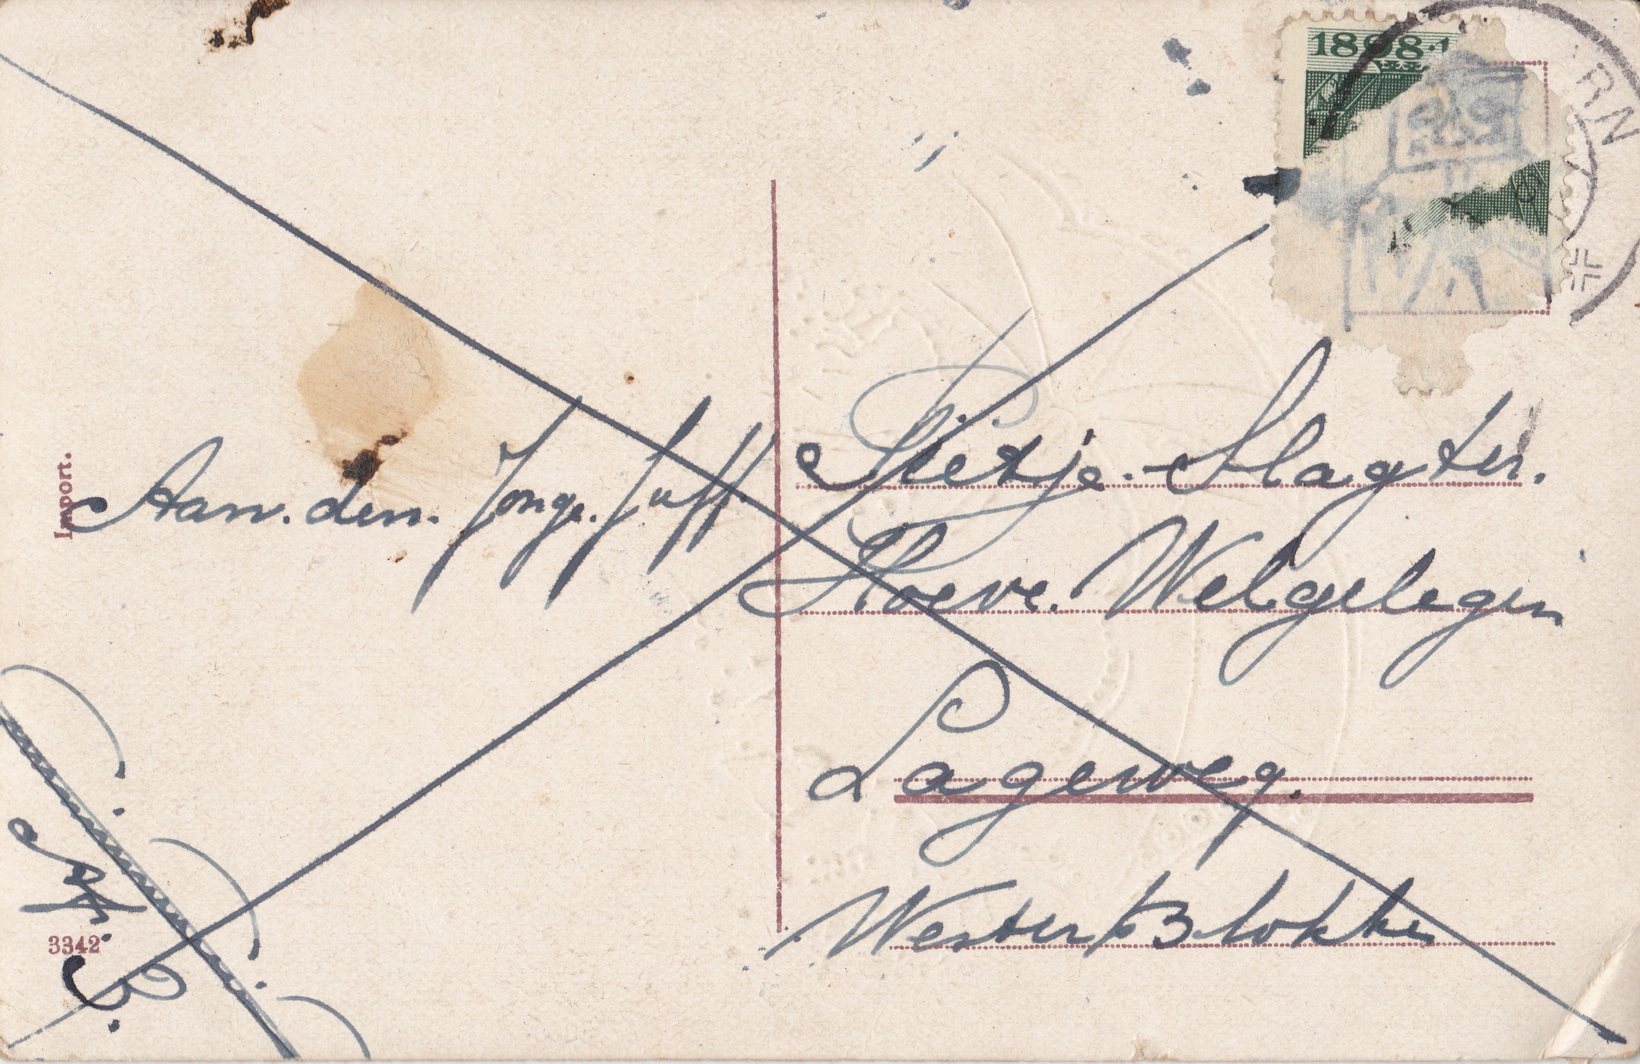 1898·1
RN
Import.
Aan. den. Jonge. Juff.
Pietje. Slagter.
Hoeve. Welgelegen
Lageweg.
Wester Blokker
3342